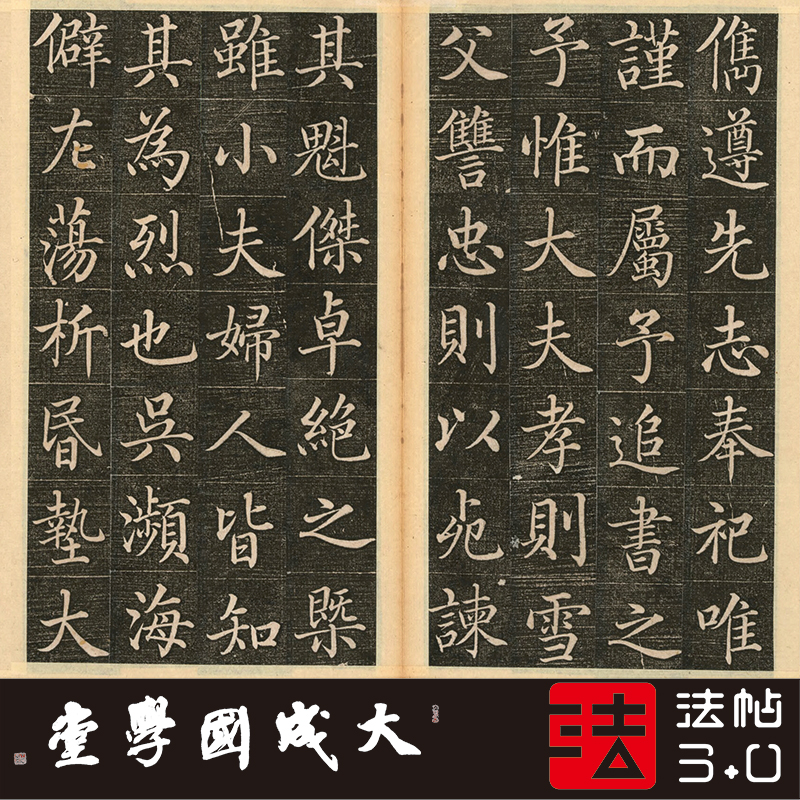 儁遵先志奉祀唯
謹而屬予追書之
予惟大夫孝則雪
父讐忠則以死諫
其魁傑卓絶之槩
雖小夫婦人皆知
其為烈也吳瀕海
僻左蕩析昬墊大
大成國學堂
法
法帖
3.0